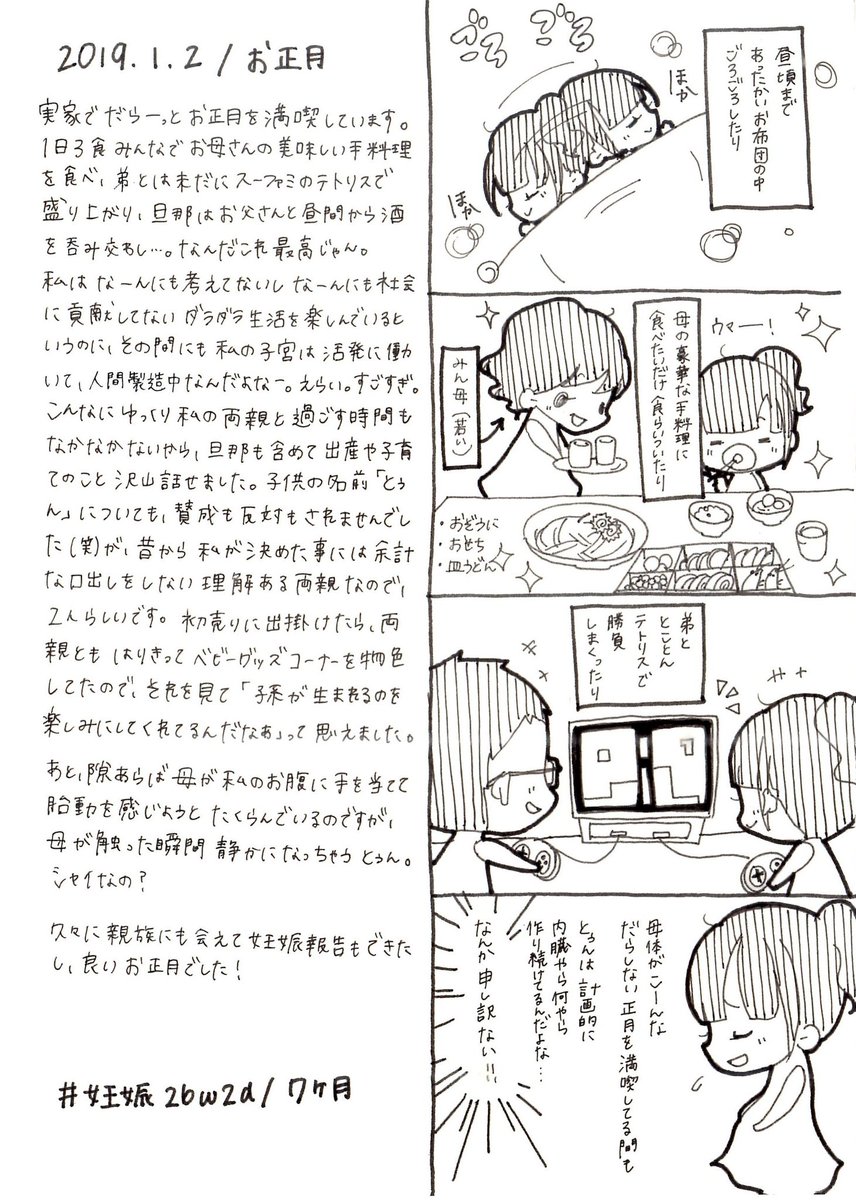 2019.1.2/お正月
実家でだらーっとお正月を満喫しています。
1日3食みんなでお母さんの美味しい手料理
を食べ、弟とは未だにスーファミのテトリスで
盛り上がり、旦那はお父さんと昼間から酒
を呑み交わし…。なんだこれ最高じゃん。
私はなーんにも考えてないしなーんにも社会
に貢献してないダラダラ生活を楽しんでいると
いうのに、その間にも私の子宮は活発に働
いて、人間製造中なんだよなー。えらい。すごすぎ。
こんなにゆっくり私の両親と過ごす時間も
なかなかないから、旦那も含めて出産や子育
てのこと沢山話せました。子供の名前「とぅ
ん」についても、賛成も反対もされませんでし
た(笑)が、昔から私が決めた事には余計
な口出しをしない理解ある両親なので、
2人らしいです。初売りに出掛けたら、両
親ともはりきってベビーグッズコーナーを物色
してたので、それを見て「子系が生まれるのを
楽しみにしてくれてるんだなぁ」って思えました。
あと、隙あらば母が私のお腹に手を当てて
胎動を感じようとたくらんでいるのですが、
母が触った瞬間静かになっちゃうとぅん。
シャイなの?
久々に親族にも会えて妊娠報告もできた
し、良いお正月でした!
#妊娠26w2d/7ヶ月
昼頃まで
あったかいお布団の中
ごろごろしたり
ごろ
ごろ
ほか
ほか
母の豪華な手料理に
食べたいだけ食らいついたり
ウマー!
みん母(若い)
・おぞうに
・おせち
・皿うどん
弟と
とことん
テトリスで
勝負
しまくったり
母体がこーんな
だらしない正月を満喫してる間も
とぅんは計画的に
内臓やら何やら
作り続けてるんだよな…
なんか申し訳ない!!